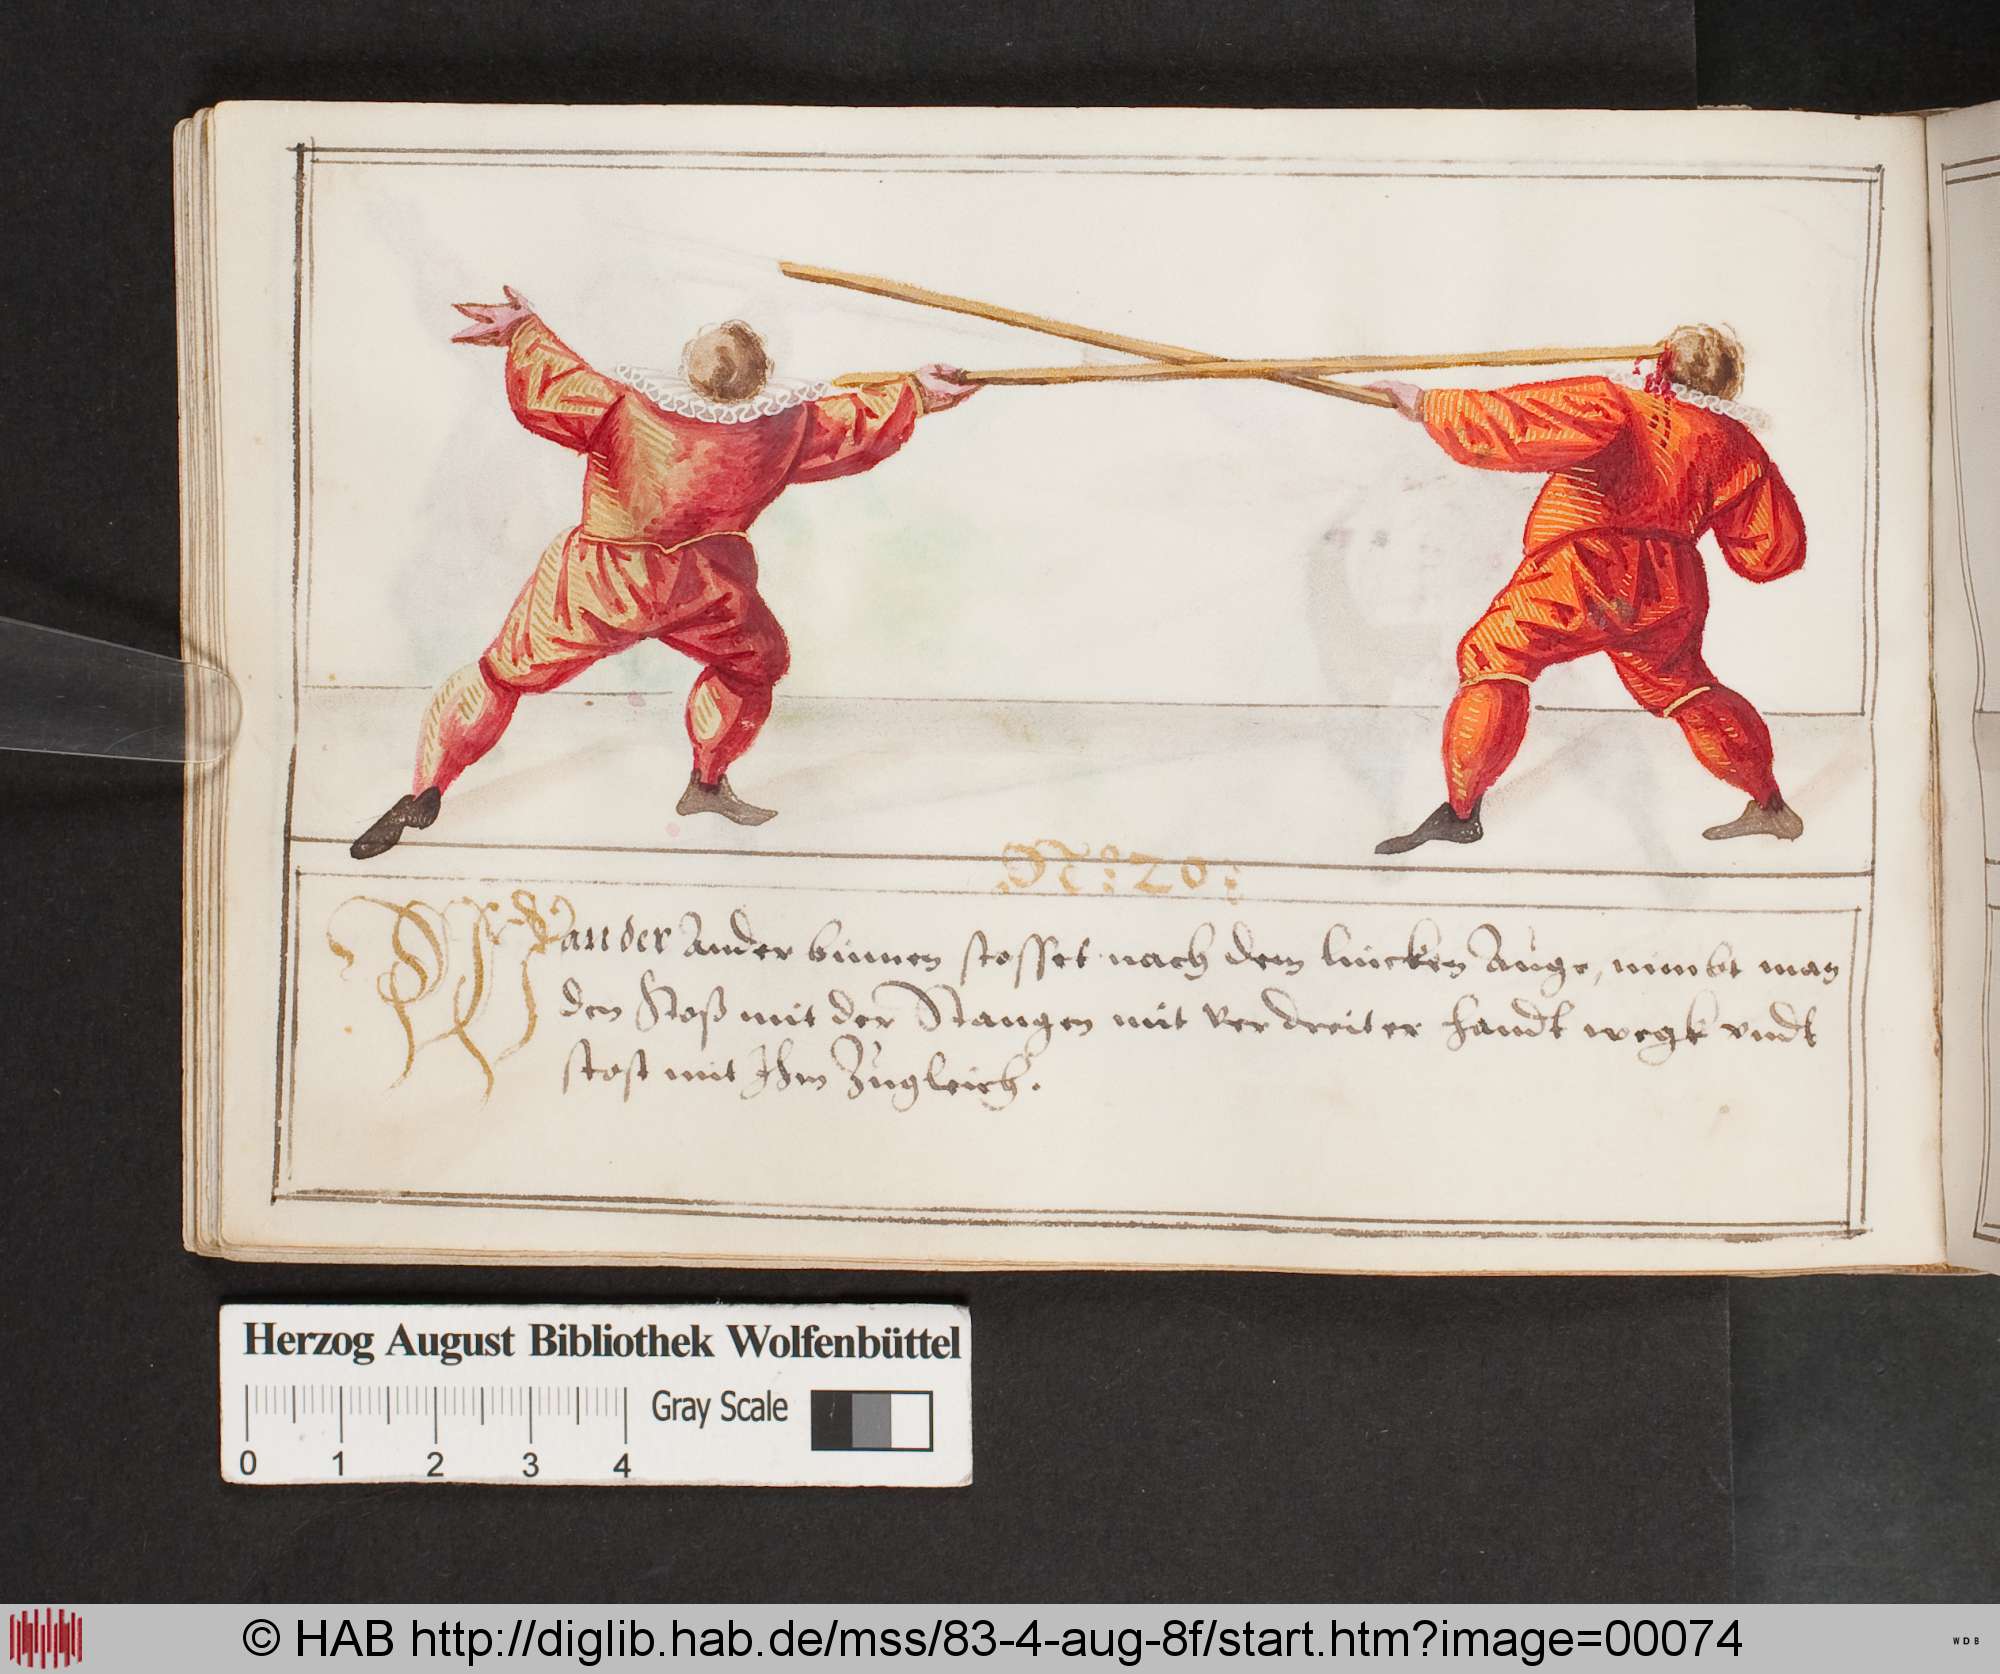 N: 20:
Wan der Ander binnen stosset nach dem lincken Auge, nimbt man
den Stoß mit der Stangen mit verdreiter handt wegk vndt
stost mit Ihm Zugleich.
Herzog August Bibliothek Wolfenbüttel
Gray Scale
0 1 2 3 4
© HAB http://diglib.hab.de/mss/83-4-aug-8f/start.htm?image=00074
WDB